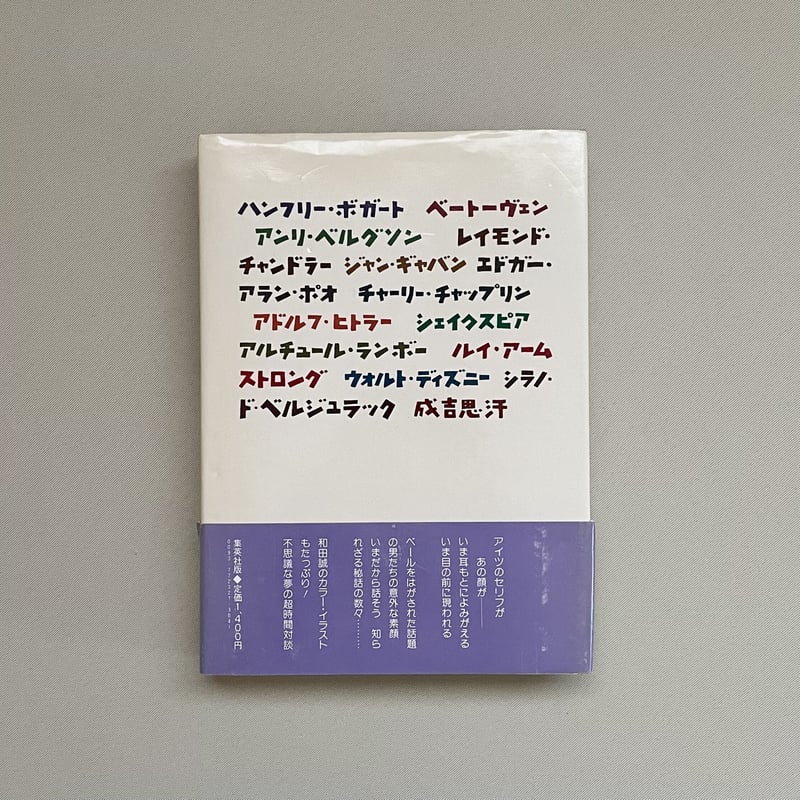 ハンフリー・ボガート　ベートーヴェン
アンリ・ベルグソン　レイモンド・
チャンドラー　ジャン・ギャバン　エドガー・
アラン・ポオ　チャーリー・チャップリン
アドルフ・ヒトラー　シェイクスピア
アルチュール・ランボー　ルイ・アーム
ストロング　ウォルト・ディズニー　シラノ・
ド・ベルジュラック　成吉思・汗
アイツのセリフが
あの顔が――
いま耳もとによみがえる
いま目の前に現われる
ベールをはがされた話題
の男たちの意外な素顔
いまだから話そう　知ら
れざる秘話の数々………
和田誠のカラー・イラスト
もたっぷり！
不思議な夢の超時間対談
集英社版◆定価1,400円